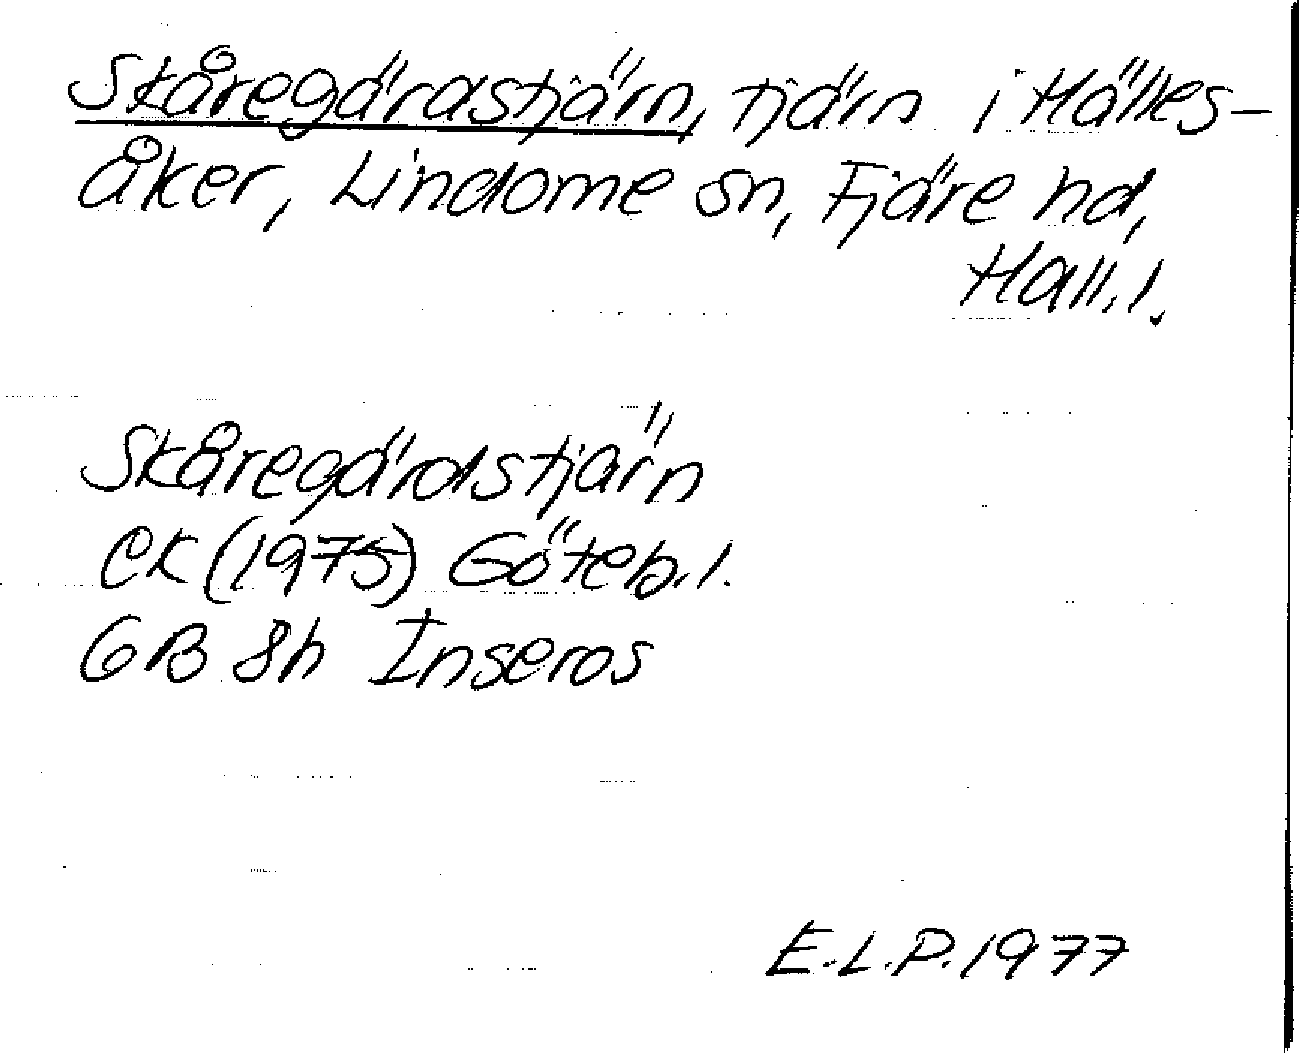 Skåregärdstjärn, tjärn i Hälles-
åker, Lindome sn, Fjäre hd,
Hall.l.
Skåregärdstjärn
EK (1975) Göteb.l.
GB 8h Inseros
E.L.P. 1977